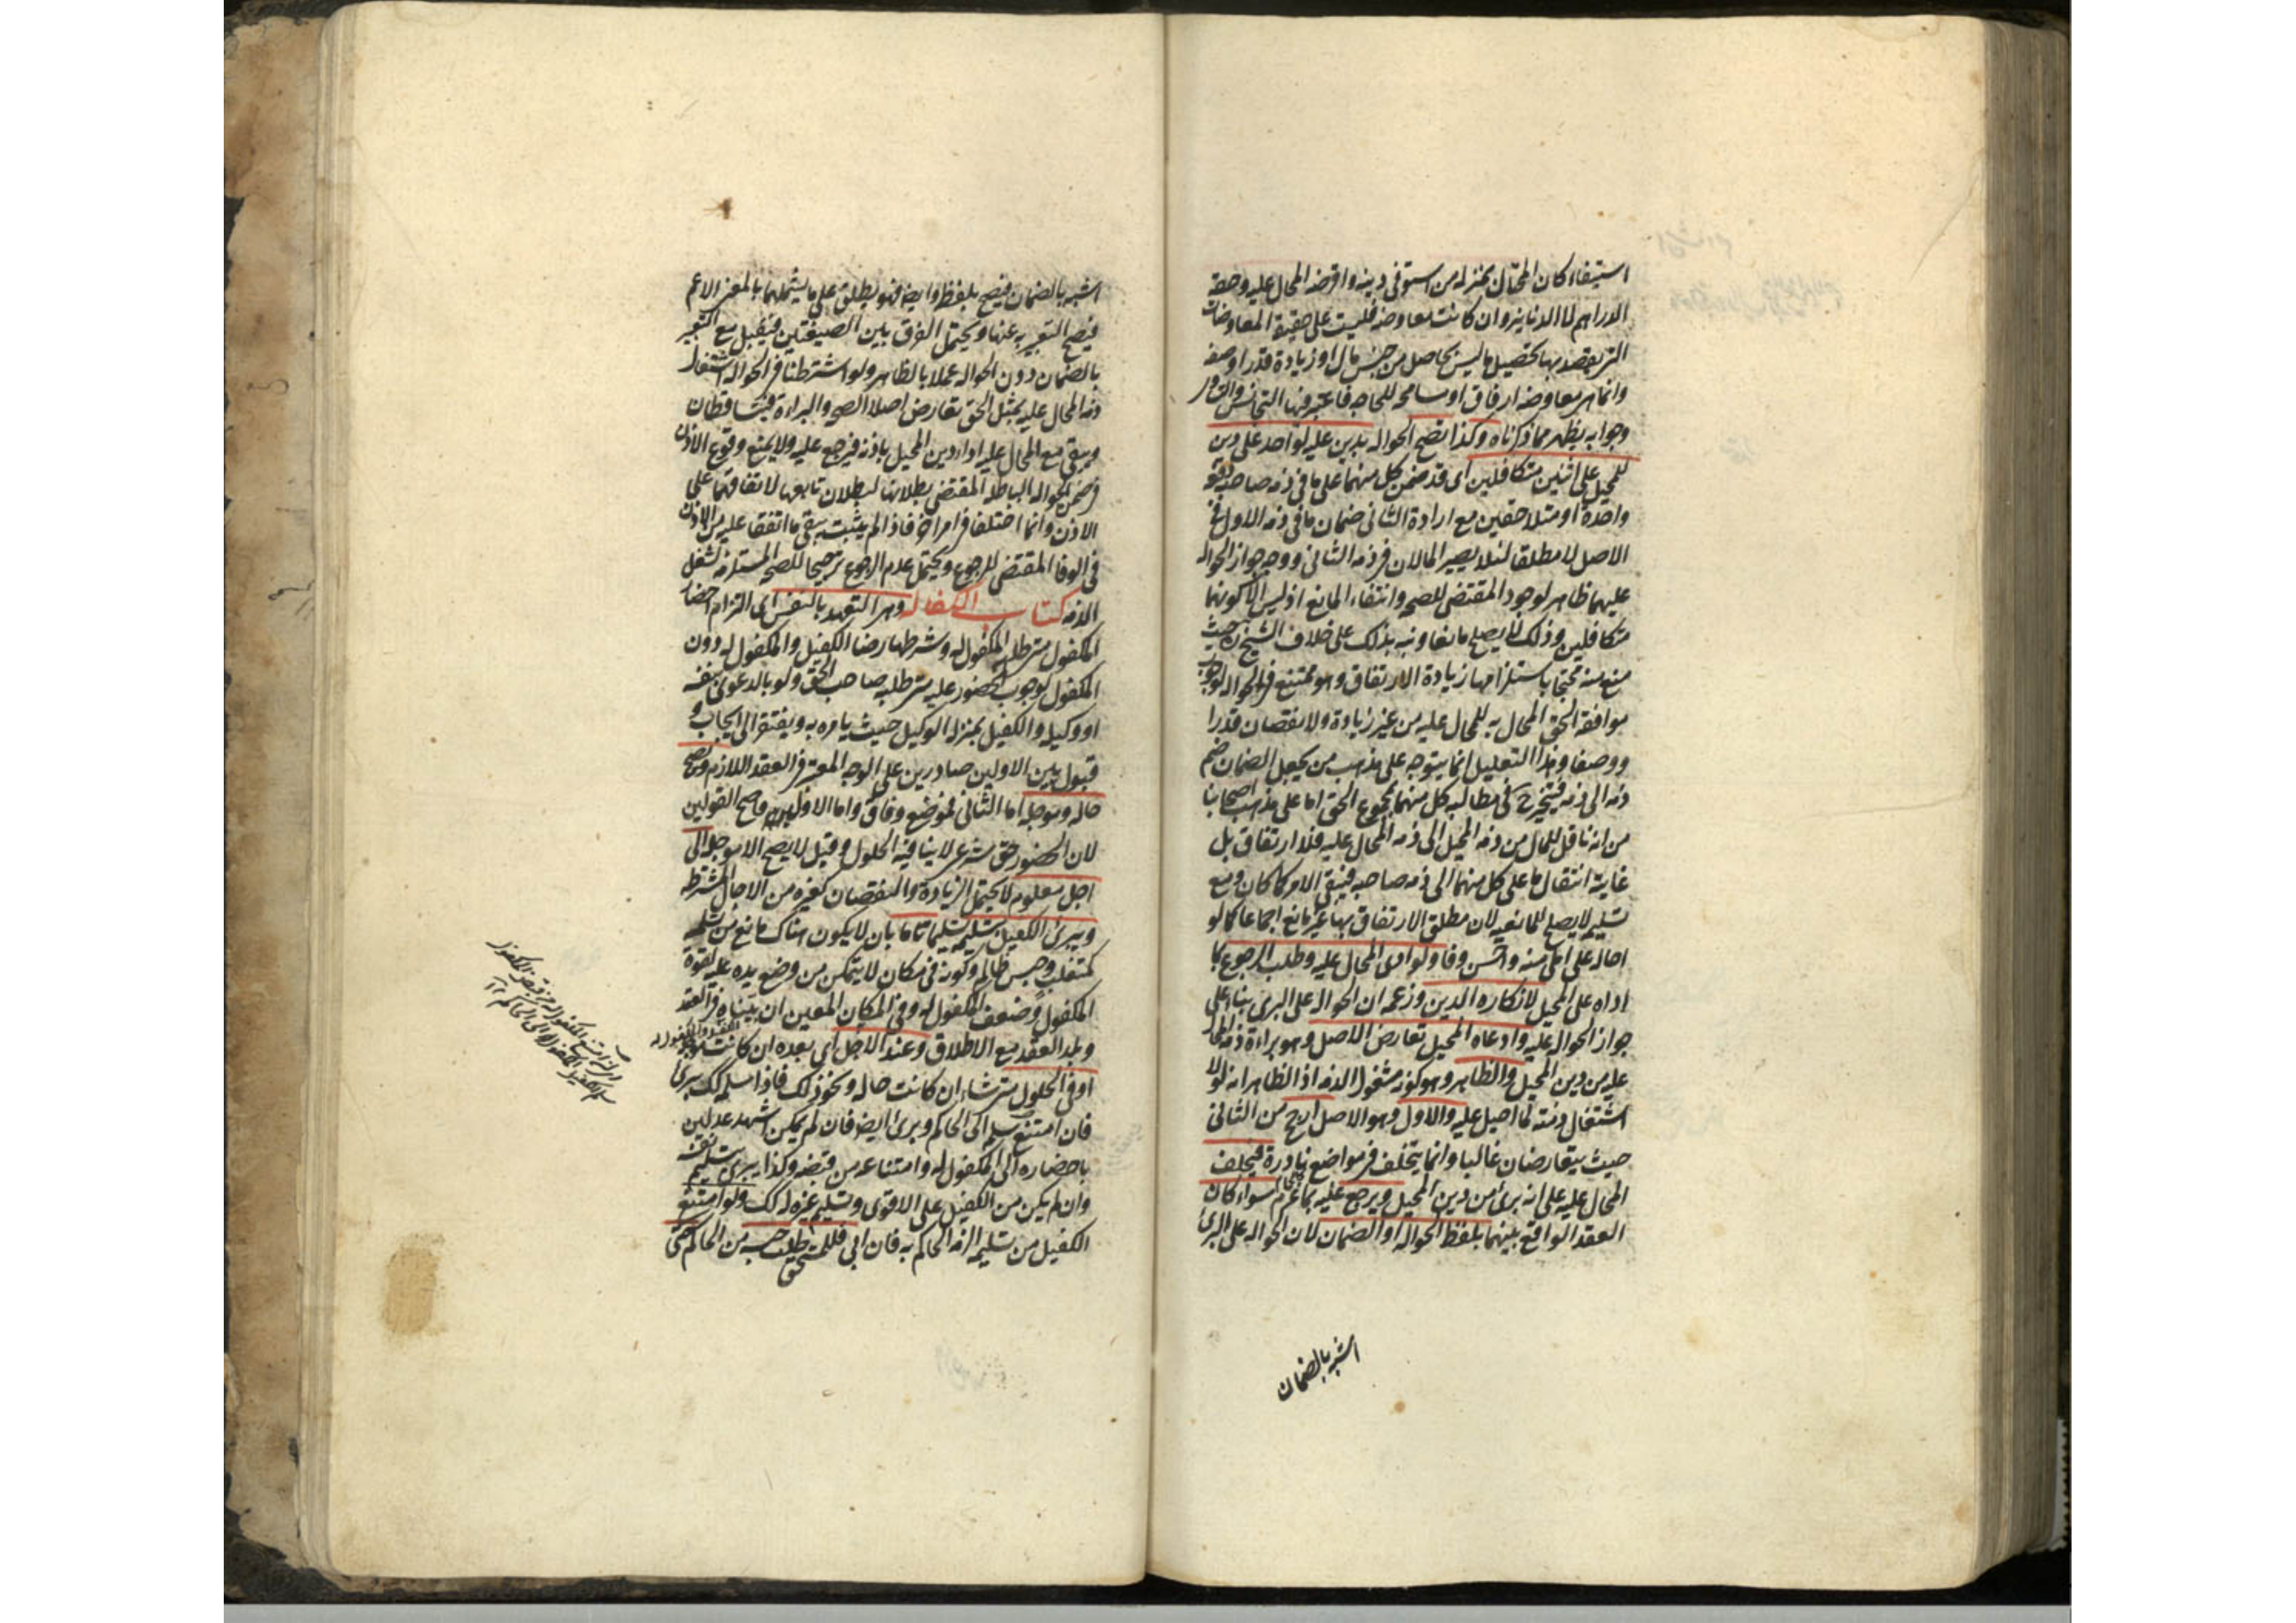 استيفاء كان المحتال بمنزلة من استوفى دينه واقرضه المحال عليه وحقه
الدراهم لا الدنانير وان كانت معاوضه فليست على حقيقة المعاوضات
التي يقصد بها تحصيل ما ليس بحاصل من جنس مال او زيادة قدر او صفه
وانما هي معاوضه ارفاق او مسامحه للحاجه فاعتبر فيها التجانس والتساوي
وجوابه يظهر مما ذكرناه وكذا تصح الحواله بدين عليه لواحد على دين
للمحيل على اثنين متكافلين اى قد ضمن كل منهما على ما في ذمه صاحبه دفعة
واحدة او متلاحقين مع ارادة الثانى ضمان ما في ذمه الاول في
الاصل لا مطلقا لئلا يصير المالان في ذمه الثاني ووجه جواز الحواله
عليهما ظاهر لوجود المقتضى للصحه وانتفاء المانع اذ ليس الا كونهما
متكافلين وذلك لا يصلح مانعا ونبه بذلك على خلاف الشيخ ره حيث
منع منه محتجا باستلزامها زيادة الارتفاق وهو ممتنع في الحواله لوجوب
موافقة الحق المحال به للمحال عليه من غير زيادة ولا نقصان قدرا
ووصفا وهذا التعليل انما يتوجه على مذهب من يجعل الضمان ضم
ذمه الى ذمه فيتخير ح في مطالبه كل منهما بمجموع الحق اما على مذهب اصحابنا
من انه ناقل للمال من ذمه المحيل الى ذمه المحال عليه فلا ارتفاق بل
غايته انتقال ما على كل منهما الى ذمه صاحبه فيبقى الامر كما كان ومع
تسليمه لا يصلح للمانعيه لان مطلق الارتفاق بها غير مانع اجماعا كما لو
احاله على املى منه واحسن وفا ولو ادى المحال عليه وطلب الرجوع بما
اداه على المحيل لانكاره الدين وزعمه ان الحواله على البرى بناء على
جواز الحواله عليه وادعاه المحيل تعارض الاصل وهو براءة ذمه المحال
عليه من دين المحيل والظاهر وهو كونه مشغول الذمه اذ الظاهر انه لولا
اشتغال ذمته لما احيل عليه والاول وهو الاصل ارجح من الثانى
حيث يتعارضان غالبا وانما يتخلف في مواضع نادرة فيحلف
المحال عليه على انه برى من دين المحيل ويرجع عليه بما غرم سواء كان
العقد الواقع بينهما بلفظ الحواله او الضمان لان الحواله على البرى
اشبه بالضمان
اشبه بالضمان فيصح بلفظه وايضا فهو يطلق على ما يشملهما بالمعنى الاعم
فيصح التعبير به عنها ويحتمل الفرق بين الصيغتين فيقبل مع التعبير
بالضمان دون الحواله عملا بالظاهر ولو اشترطنا في الحواله اشتغال
ذمه المحال عليه بمثل الحق تعارض اصلا الصحه والبراءة فيتساقطان
ويبقى مع المحال عليه اداء دين المحيل باذنه فيرجع عليه ولا يمنع وقوع الاذن
في ضمن الحواله الباطله المقتضى بطلانها لبطلان تابعها لاتفاقهما على
الاذن وانما اختلفا في امر اخر فاذا لم يثبت يبقى ما اتفقا عليه من الاذن
في الوفا المقتضى للرجوع ويحتمل عدم الرجوع ترجيحا للصحه المستلزمه لشغل
الذمه كتاب الكفاله وهى التعهد بالنفس اى التزام احضار
المكفول متى طلبه المكفول له وشرطها رضا الكفيل والمكفول له دون
المكفول لوجوب الحضور عليه متى طلبه صاحب الحق ولو بالدعوى بنفسه
او وكيله والكفيل بمنزله الوكيل حيث يامره به ويفتقر الى ايجاب و
قبول بين الاولين صادرين على الوجه المعتبر في العقد اللازم وتصح
حاله وموجله اما الثانى فموضع وفاق واما الاول فهو اصح القولين
لان الحضور حق شرعى لا ينافيه الحلول وقيل لا يصح الا موجله الى
اجل معلوم لا يحتمل الزيادة والنقصان كغيره من الاجال المشترطه
ويبرى الكفيل بتسليمه تسليما تاما بان لا يكون هناك مانع من تسلمه
كمتغلب وحبس ظالم وكونه في مكان لا يتمكن من وضع يده عليه لقوة
المكفول وضعف المكفول له وفي المكان المعين ان بيناه في العقد
وبلد العقد مع الاطلاق وعند الاجل اى بعده ان كانت موجله
او في الحلول متى شاء ان كانت حاله ونحو ذلك فاذا سلمه كك برى
فان امتنع سلمه الى الحاكم وبرى ايضا فان لم يمكن اشهد عدلين
باحضاره الى المكفول له وامتناعه من قبضه وكذا يبرى بتسليم نفسه
وان لم يكن من الكفيل على الاقوى وتسليم غيره له كك ولو امتنع
الكفيل من تسليمه الزمه الحاكم به فان ابى فللمستحق طلب حبسه من الحاكم حتى